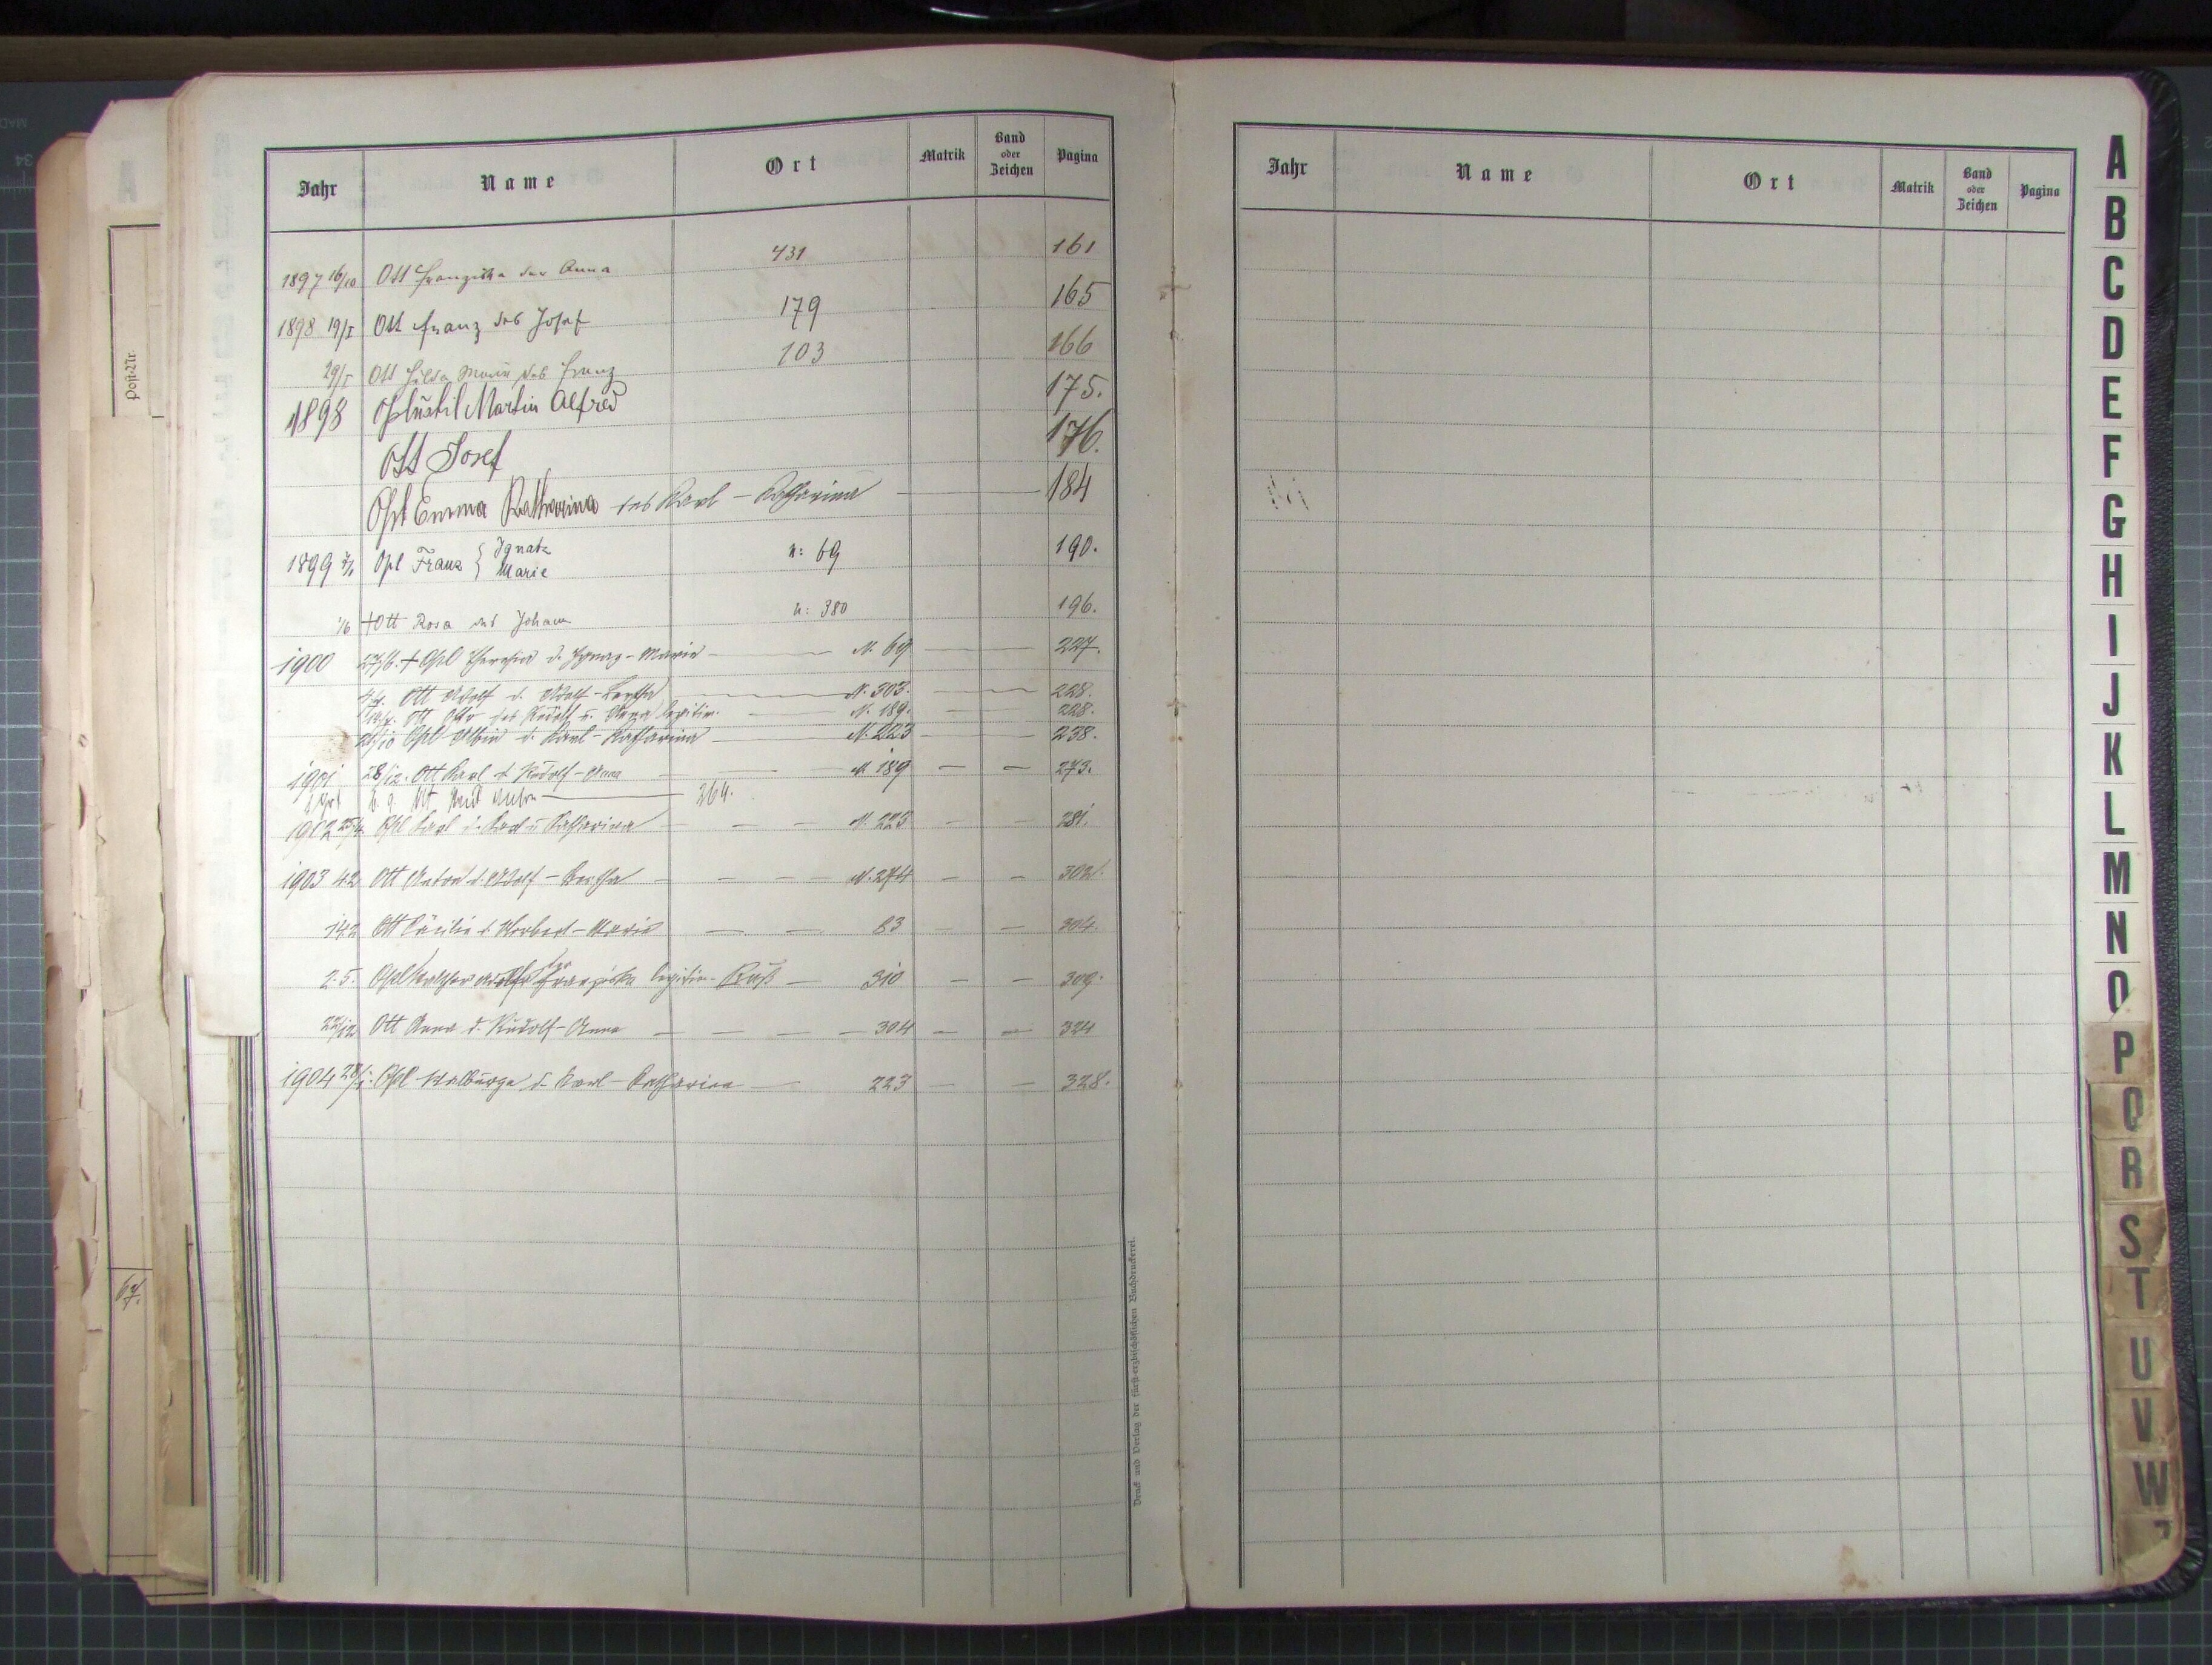 Jahr Name Ort Matrik Band oder Zeichen Pagina
1897 16/10 Ott Franziska der Anna 431 161
1898 19/I Ott Franz des Josef 179 165
29/I Ott Hilda Marie des Franz 103 166
1898 Martin Alfred 175.
Ott Josef 176.
Opl Emma Katharina des Karl - Katharina 184
1899 Opl Franz { Ignatz Marie n: 69 190.
1/6 + Ott Rosa des Johann n: 380 196.
1900 27/6. + Opl Theresia d. Ignaz - Marie N. 69 227.
Ott Adolf d. Adolf - Bertha N. 303. 228.
Ott Otto des Rudolf u. Anna legitim. N. 189. 228.
Opl Albin d. Karl - Katharina N. 223 238.
1901 28/12. Ott Karl d. Rudolf - Anna N. 189 273.
Ott 264.
1902 Opl Karl d. Karl u Katharina N. 223 281.
1903 4.2 Ott Anton d. Adolf - Bertha N. 274 302.
14.2 Ott Cäcilie d. Norbert - Marie 83 304.
2.5. Opl der Franziska legitim. 310 309.
22/12 Ott Anna d. Rudolf - Anna 304 324
1904 Opl Walburga d. Karl - Katharina 223 328.
Druck und Verlag der fürst-erzbischöflichen Buchdruckerei.
Jahr Name Ort Matrik Band oder Zeichen Pagina
A
B
C
D
E
F
G
H
I
J
K
L
M
N
O
P
Q
R
S
T
U
V
W
Post-Nr.
67.